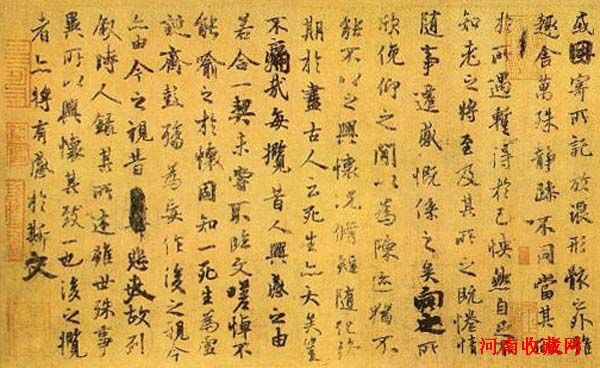 或因寄所託放浪形骸之外雖
趣舍萬殊靜躁不同當其欣
於所遇暫得於己怏然自足不
知老之將至及其所之既惓情
隨事遷感慨係之矣向之所
欣俛仰之閒以為陳迹猶不
能不以之興懷況脩短隨化終
期於盡古人云死生亦大矣豈
不痛哉每攬昔人興感之由
若合一契未嘗不臨文嗟悼不
能喻之於懷固知一死生為虛
誕齊彭殤為妄作後之視今
亦由今之視昔悲夫故列
敘時人錄其所述雖世殊事
異所以興懷其致一也後之攬
者亦將有感於斯文
河南收藏网